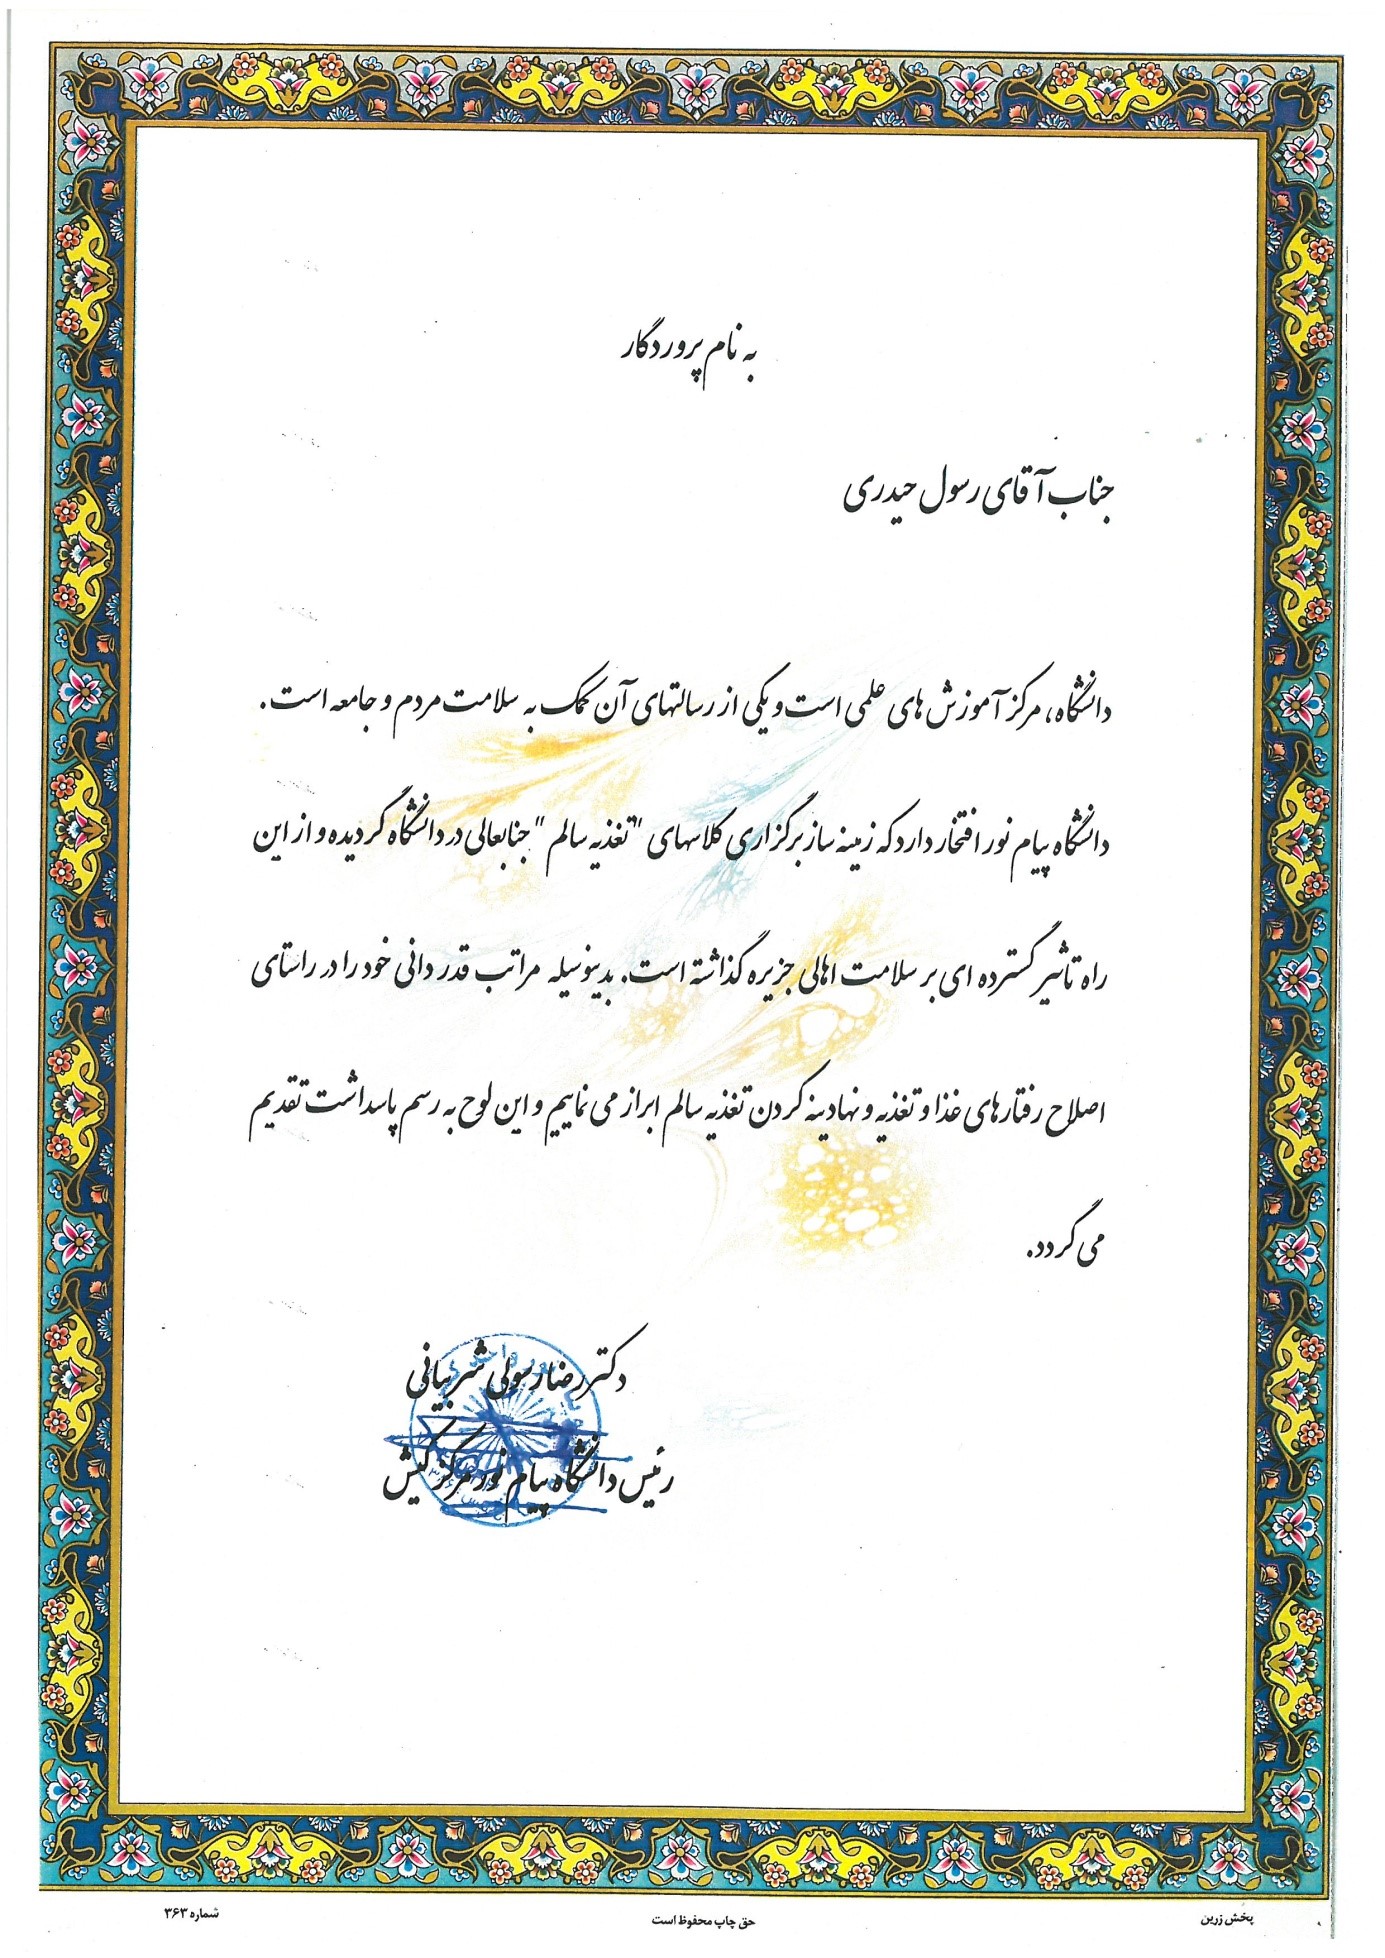 به نام پروردگار
جناب آقای رسول حیدری
دانشگاه، مرکز آموزش های علمی است و یکی از رسالتهای آن کمک به سلامت مردم و جامعه است.
دانشگاه پیام نور افتخار دارد که زمینه ساز برگزاری کلاسهای "تغذیه سالم" جنابعالی در دانشگاه گردیده و از این
راه تاثیر گسترده ای بر سلامت اهالی جزیره گذاشته است. بدینوسیله مراتب قدردانی خود را در راستای
اصلاح رفتارهای غذا و تغذیه و نهادینه کردن تغذیه سالم ابراز می نماییم و این لوح به رسم پاسداشت تقدیم
می گردد.
دکتر رضا رسولی شربیانی
رئیس دانشگاه پیام نور مرکز کیش
پخش زرین
حق چاپ محفوظ است
شماره ۳۶۳